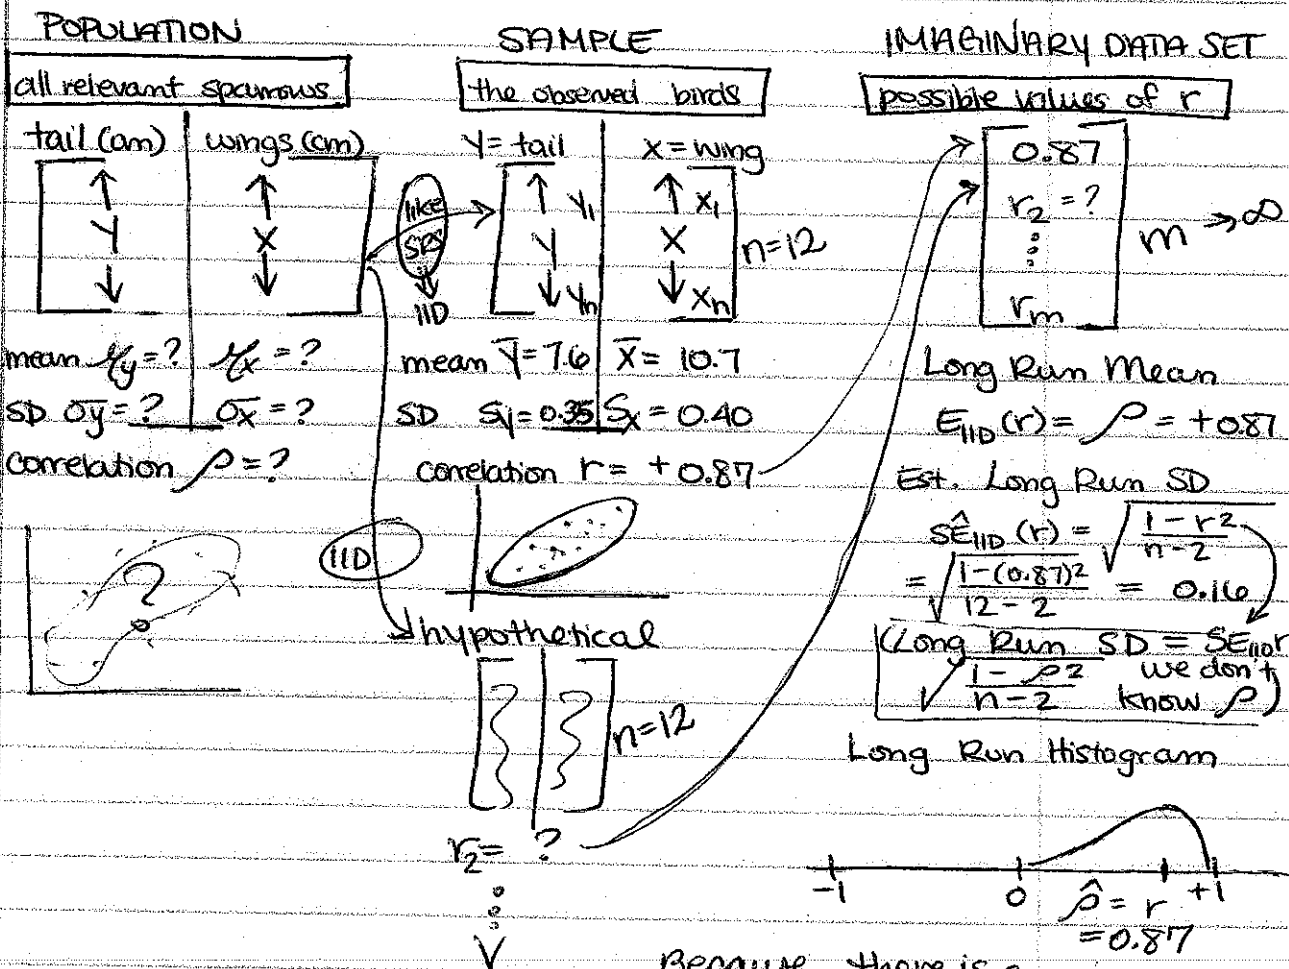 POPULATION
all relevant sparrows
tail (cm) wings (cm)
Y X
mean μy = ? μx = ?
SD σy = ? σx = ?
correlation ρ = ?
?
like
SRS
IID
IID
SAMPLE
the observed birds
Y = tail X = wing
Y1 X1
Y X n=12
Yn Xn
mean Ȳ = 7.6 X̄ = 10.7
SD Sy = 0.35 Sx = 0.40
correlation r = +0.87
hypothetical
n=12
r2 = ?
IMAGINARY DATA SET
possible values of r
0.87
r2 = ?
m → ∞
rm
Long Run Mean
E_IID (r) = ρ = +0.87
Est. Long Run SD
SÊ_IID (r) = √((1 - r²)/(n - 2))
= √((1 - (0.87)²)/(12 - 2)) = 0.16
(Long Run SD = SE_IID r
√((1 - ρ²)/(n - 2)) we don't
know ρ)
Long Run Histogram
-1 0 +1
ρ̂ = r
= 0.87
Because there is a